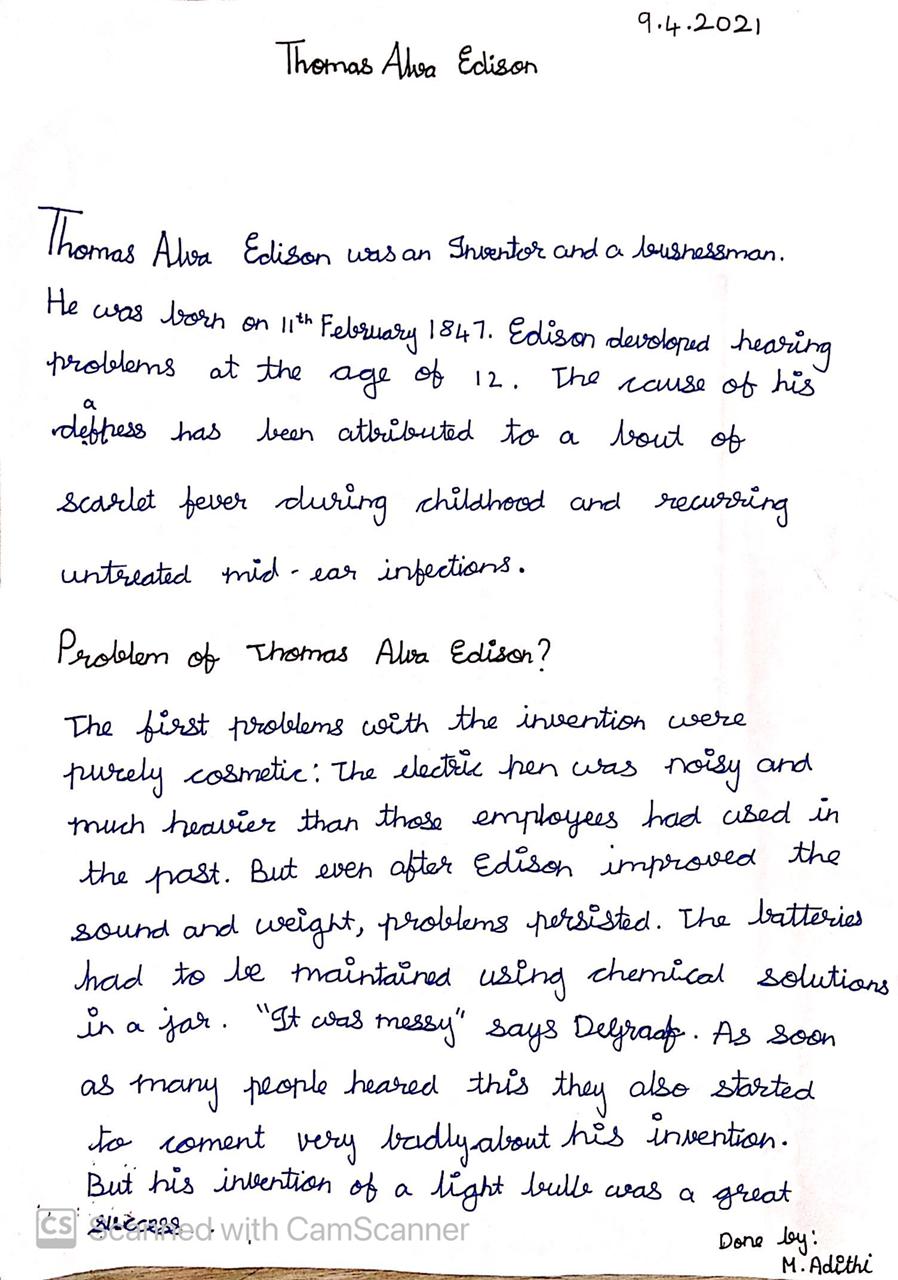 9.4.2021
Thomas Alva Edison
Thomas Alva Edison was an Inventor and a busnessman.
He was born on 11th February 1847. Edison devoloped hearing
problems at the age of 12. The cause of his
deafness has been attributed to a bout of
scarlet fever during childhood and recurring
untreated mid-ear infections.
Problem of Thomas Alva Edison?
The first problems with the invention were
purely cosmetic: The electric pen was noisy and
much heavier than those employees had used in
the past. But even after Edison improved the
sound and weight, problems persisted. The batteries
had to be maintained using chemical solutions
in a jar. "It was messy" says Degraaf. As soon
as many people heared this they also started
to coment very badly about his invention.
But his invention of a light bulb was a great
success.
CS Scanned with CamScanner
Done by:
M. Adithi